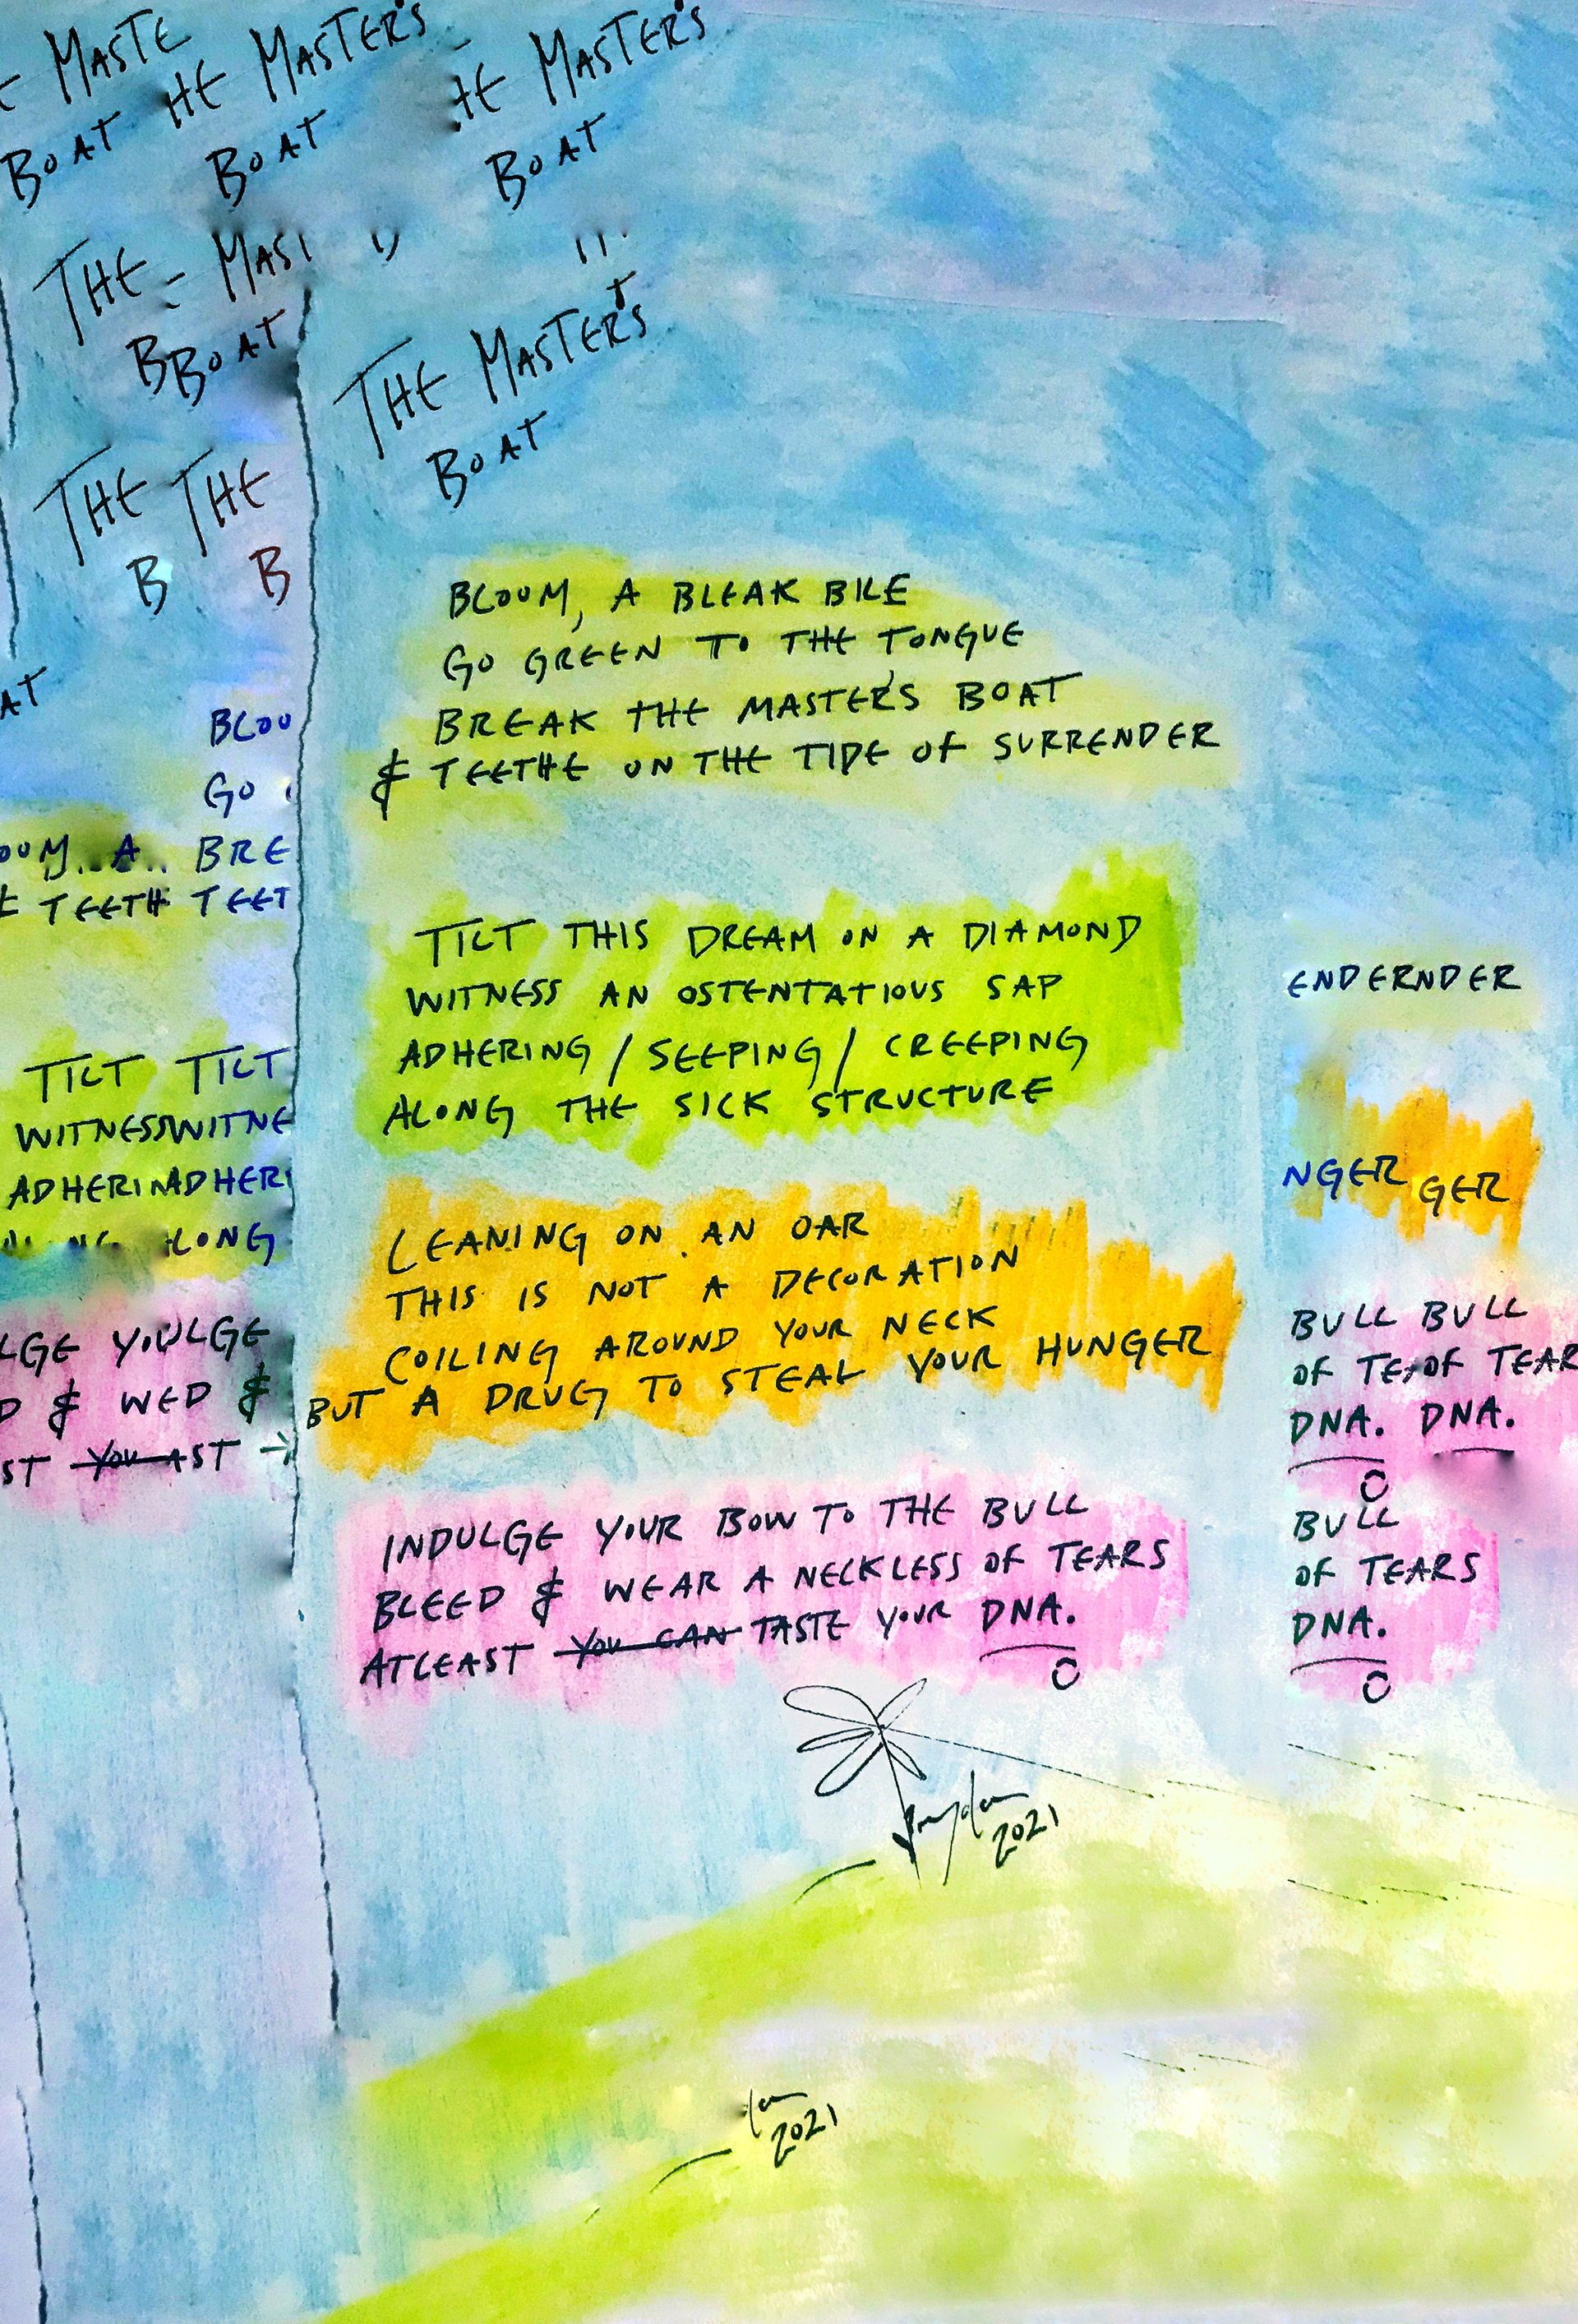 MASTE
HE MASTER'S
HE MASTER'S
BOAT
BOAT
BOAT
THE MAST
BBOAT
THE MASTER'S
BOAT
THE THE
B B
AT
BLOO
GO
OOM, A BRE
& TEETH TEET
BLOOM, A BLEAK BILE
GO GREEN TO THE TONGUE
BREAK THE MASTER'S BOAT
& TEETHE ON THE TIDE OF SURRENDER
ENDERNDER
TILT TILT
WITNESSWITNE
ADHERINADHERI
LONG
TILT THIS DREAM ON A DIAMOND
WITNESS AN OSTENTATIOUS SAP
ADHERING / SEEPING / CREEPING
ALONG THE SICK STRUCTURE
NGER GER
LEANING ON AN OAR
THIS IS NOT A DECORATION
COILING AROUND YOUR NECK
BUT A DRUG TO STEAL YOUR HUNGER
LGE YOULGE
D & WED &
ST YOU AST
INDULGE YOUR BOW TO THE BULL
BLEED & WEAR A NECKLESS OF TEARS
ATLEAST YOU CAN TASTE YOUR DNA.
BULL BULL
OF TEAOF TEAR
DNA. DNA.
BULL
OF TEARS
DNA.
2021
2021